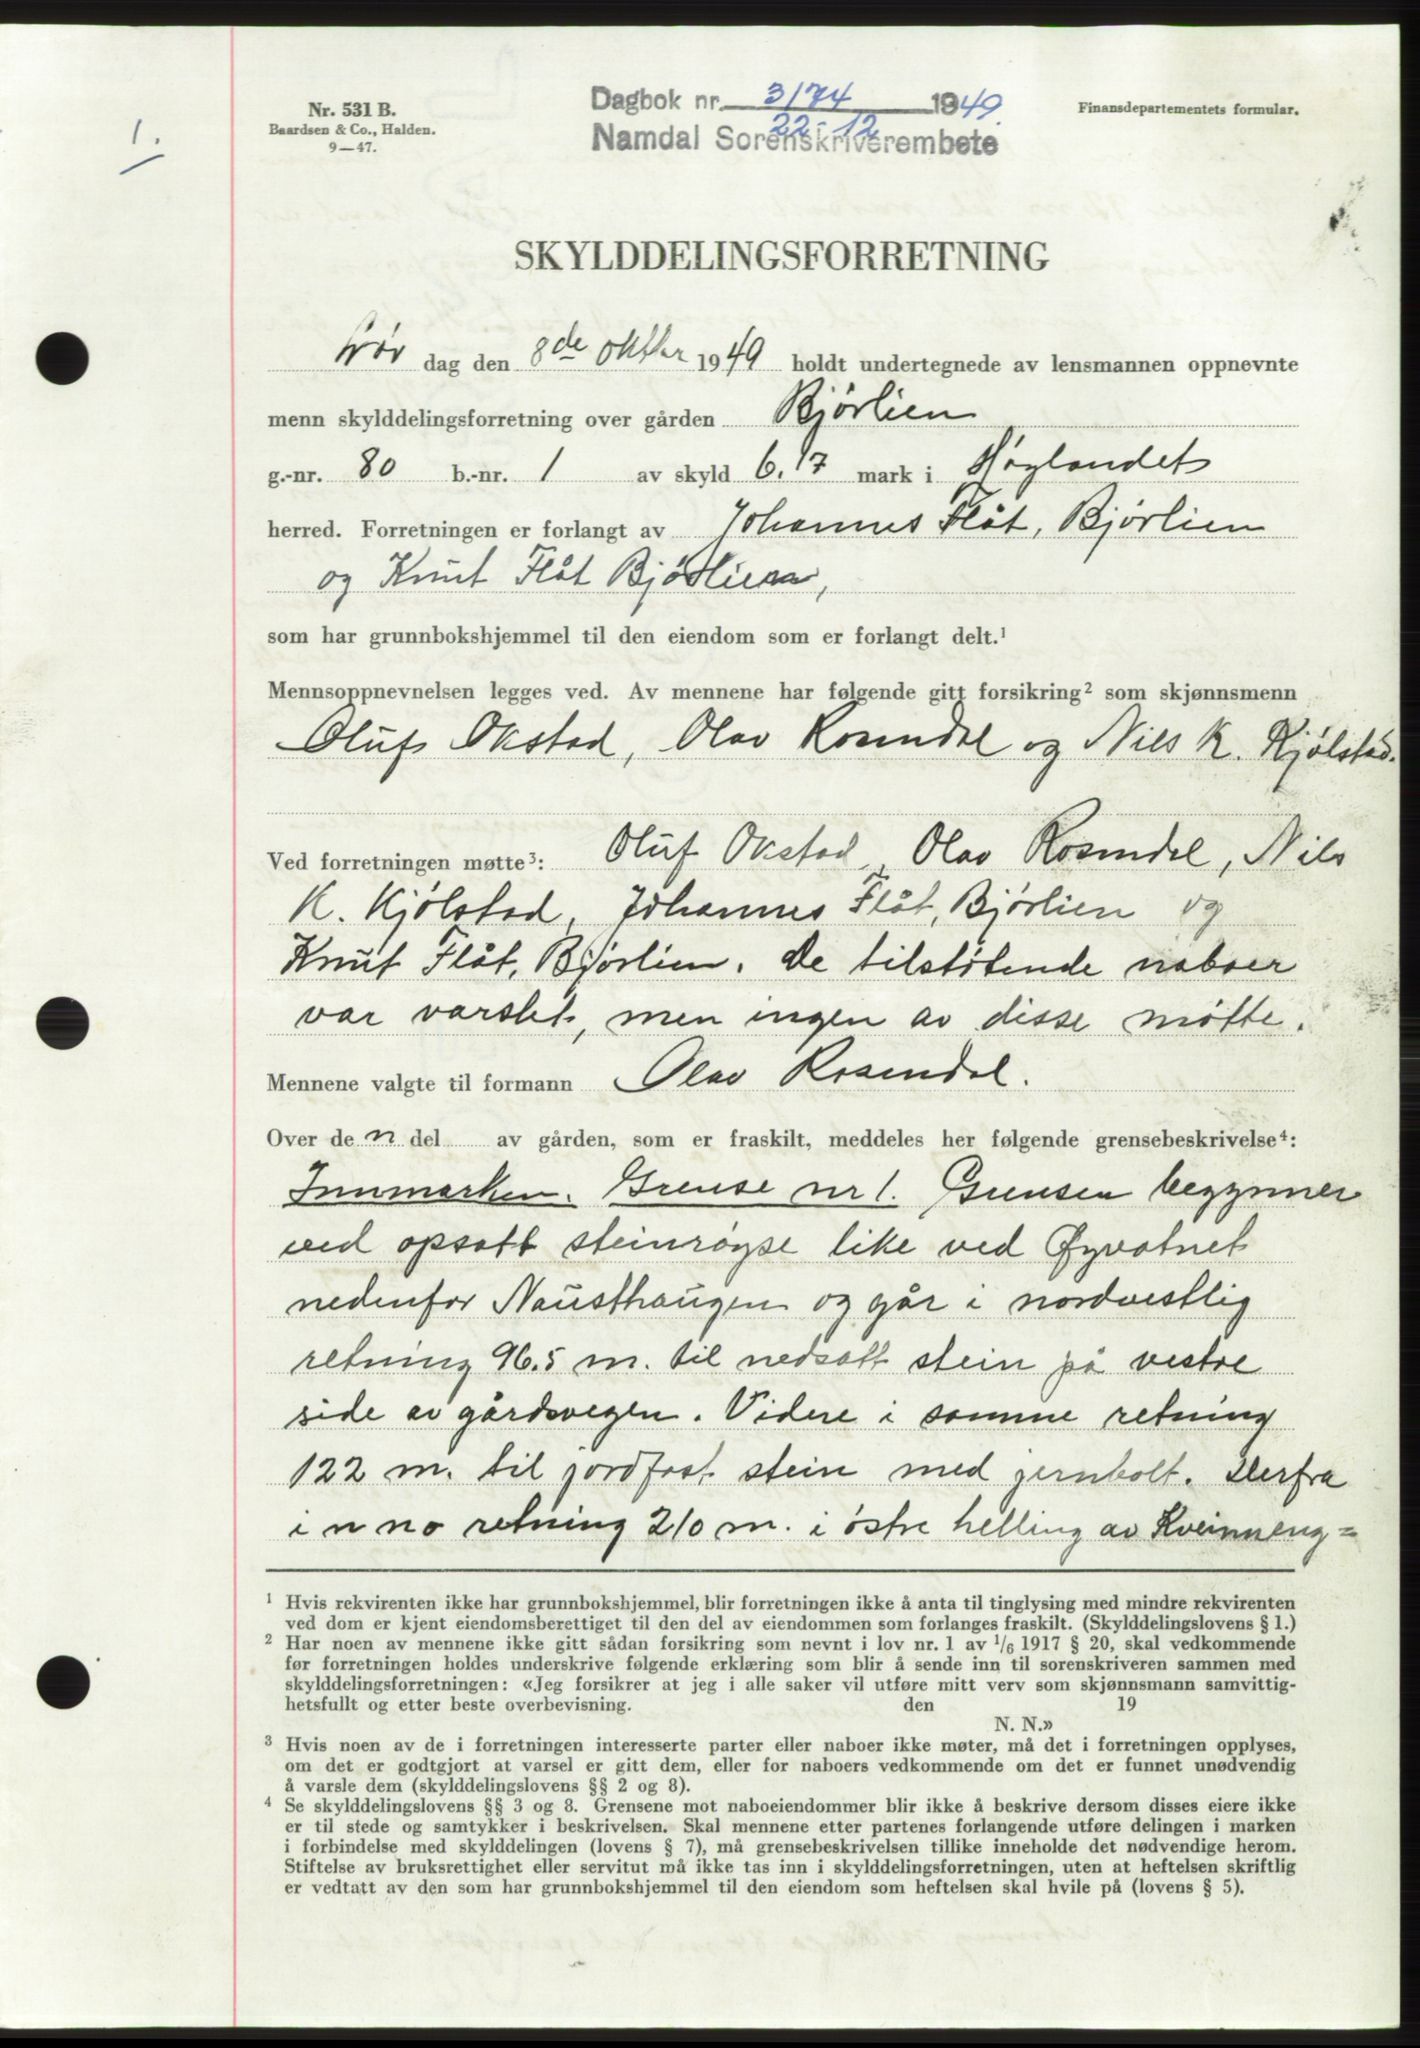 1.
Nr. 531 B.
Baardsen & Co., Halden.
9—47.
Dagbok nr. 3174 1949.
22-12
Namdal Sorenskriverembete
Finansdepartementets formular.
SKYLDDELINGSFORRETNING
dag den 8de oktbr 1949 holdt undertegnede av lensmannen oppnevnte
menn skylddelingsforretning over gården Bjørlien
g.-nr. 80 b.-nr. 1 av skyld 6.17 mark i Høylandet
herred. Forretningen er forlangt av Johannes Flåt, Bjørlien
og Knut Flåt Bjørlien,
som har grunnbokshjemmel til den eiendom som er forlangt delt.¹
Mennsoppnevnelsen legges ved. Av mennene har følgende gitt forsikring² som skjønnsmenn
Oluf Okstad, Olav Rosendal og Nils K. Kjølstad.
Ved forretningen møtte³: Oluf Okstad, Olav Rosendal, Nils
K. Kjølstad, Johannes Flåt, Bjørlien og
Knut Flåt, Bjørlien. De tilstøtende naboer
var varslet, men ingen av disse møtte.
Mennene valgte til formann Olav Rosendal.
Over de n del av gården, som er fraskilt, meddeles her følgende grensebeskrivelse⁴:
Innmarken. Grense nr 1. Grensen begynner
ved opsatt steinrøyse like ved Øyvatnet
nedenfor Nausthaugen og går i nordvestlig
retning 96.5 m. til nedsatt stein på vestre
side av gårdsvegen. Videre i samme retning
122 m. til jordfast stein med jernbolt. Herfra
i n no retning 210 m. i østre helling av Kveinneng=
¹ Hvis rekvirenten ikke har grunnbokshjemmel, blir forretningen ikke å anta til tinglysing med mindre rekvirenten
ved dom er kjent eiendomsberettiget til den del av eiendommen som forlanges fraskilt. (Skylddelingslovens § 1.)
² Har noen av mennene ikke gitt sådan forsikring som nevnt i lov nr. 1 av ¹/₆ 1917 § 20, skal vedkommende
før forretningen holdes underskrive følgende erklæring som blir å sende inn til sorenskriveren sammen med
skylddelingsforretningen: «Jeg forsikrer at jeg i alle saker vil utføre mitt verv som skjønnsmann samvittig-
hetsfullt og etter beste overbevisning. den 19
N. N.»
³ Hvis noen av de i forretningen interesserte parter eller naboer ikke møter, må det i forretningen opplyses,
om det er godtgjort at varsel er gitt dem, eller for naboers vedkommende om det er funnet unødvendig
å varsle dem (skylddelingslovens §§ 2 og 8).
⁴ Se skylddelingslovens §§ 3 og 8. Grensene mot naboeiendommer blir ikke å beskrive dersom disses eiere ikke
er til stede og samtykker i beskrivelsen. Skal mennene etter partenes forlangende utføre delingen i marken
i forbindelse med skylddelingen (lovens § 7), må grensebeskrivelsen tillike inneholde det nødvendige herom.
Stiftelse av bruksrettighet eller servitut må ikke tas inn i skylddelingsforretningen, uten at heftelsen skriftlig
er vedtatt av den som har grunnbokshjemmel til den eiendom som heftelsen skal hvile på (lovens § 5).